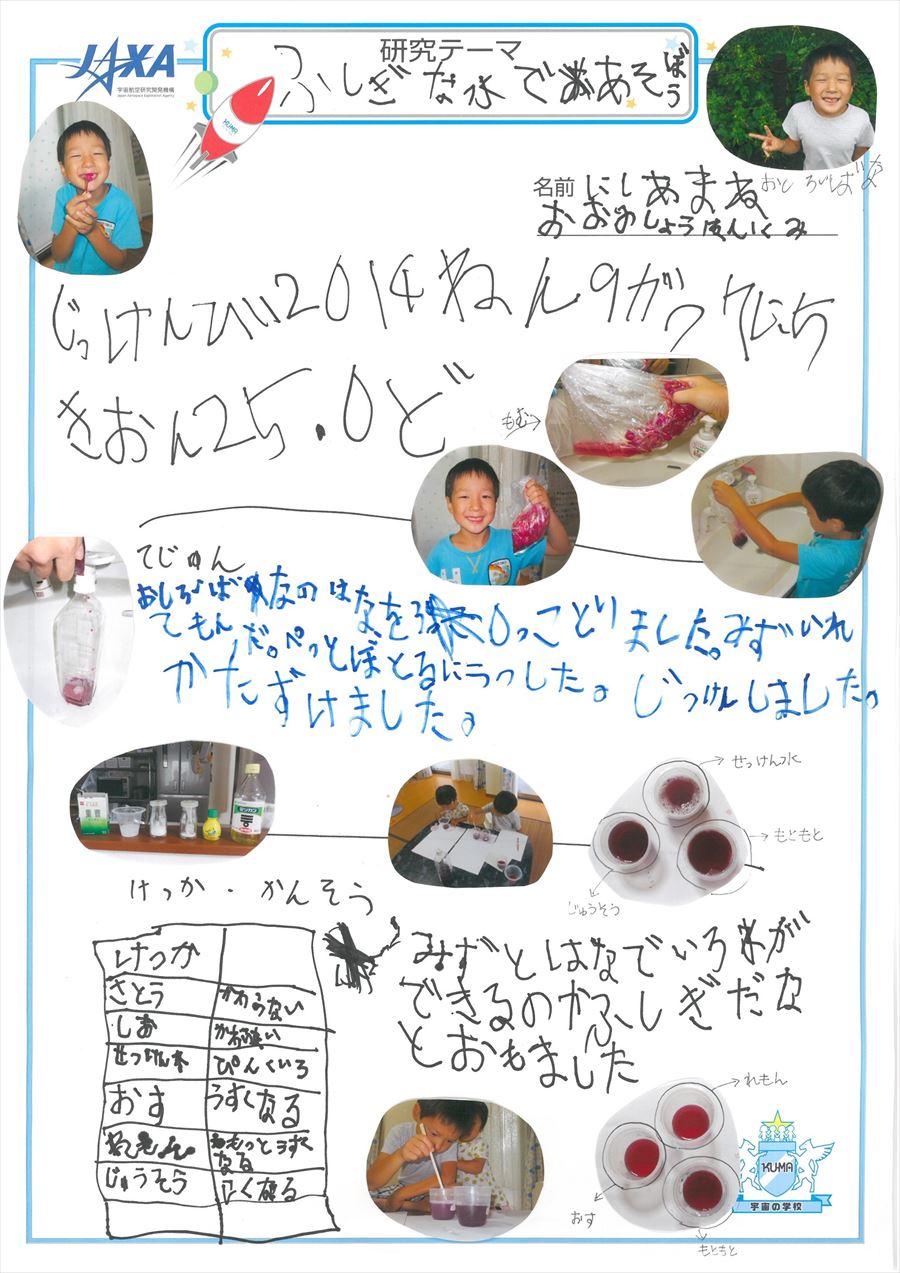 JAXA
宇宙航空研究開発機構
Japan Aerospace Exploration Agency
研究テーマ
ふしぎな水であそぼう
KUMA
名前 にしあまね
おおのしょうけんくみ
おしろいばな
じっけんひ2014ねん9がつ7にち
きおん25.0ど
もむ→
てじゅん
おしろいばなのはなを30っことりました。みずいれ
てもんだ。ぺっとぼとるにうつした。じっけんしました。
かたずけました。
せっけん水
もともと
じゅうそう
けっか・かんそう
けっか
さとう かわらない
しお かわらない
せっけん水 ぴんくいろ
おす うすくなる
れもん もっとうすく
なる
じゅうそう こくなる
みずとはなでいろ水が
できるのがふしぎだな
とおもました
れもん
おす
もともと
KUMA
宇宙の学校